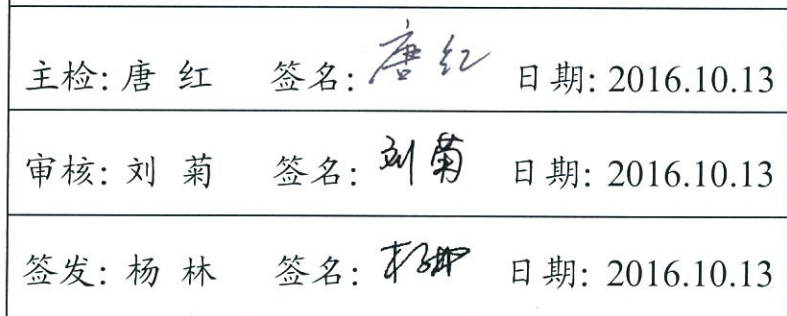 主检: 唐 红 签名: 唐红 日期: 2016.10.13
审核: 刘 菊 签名: 刘菊 日期: 2016.10.13
签发: 杨 林 签名: 日期: 2016.10.13